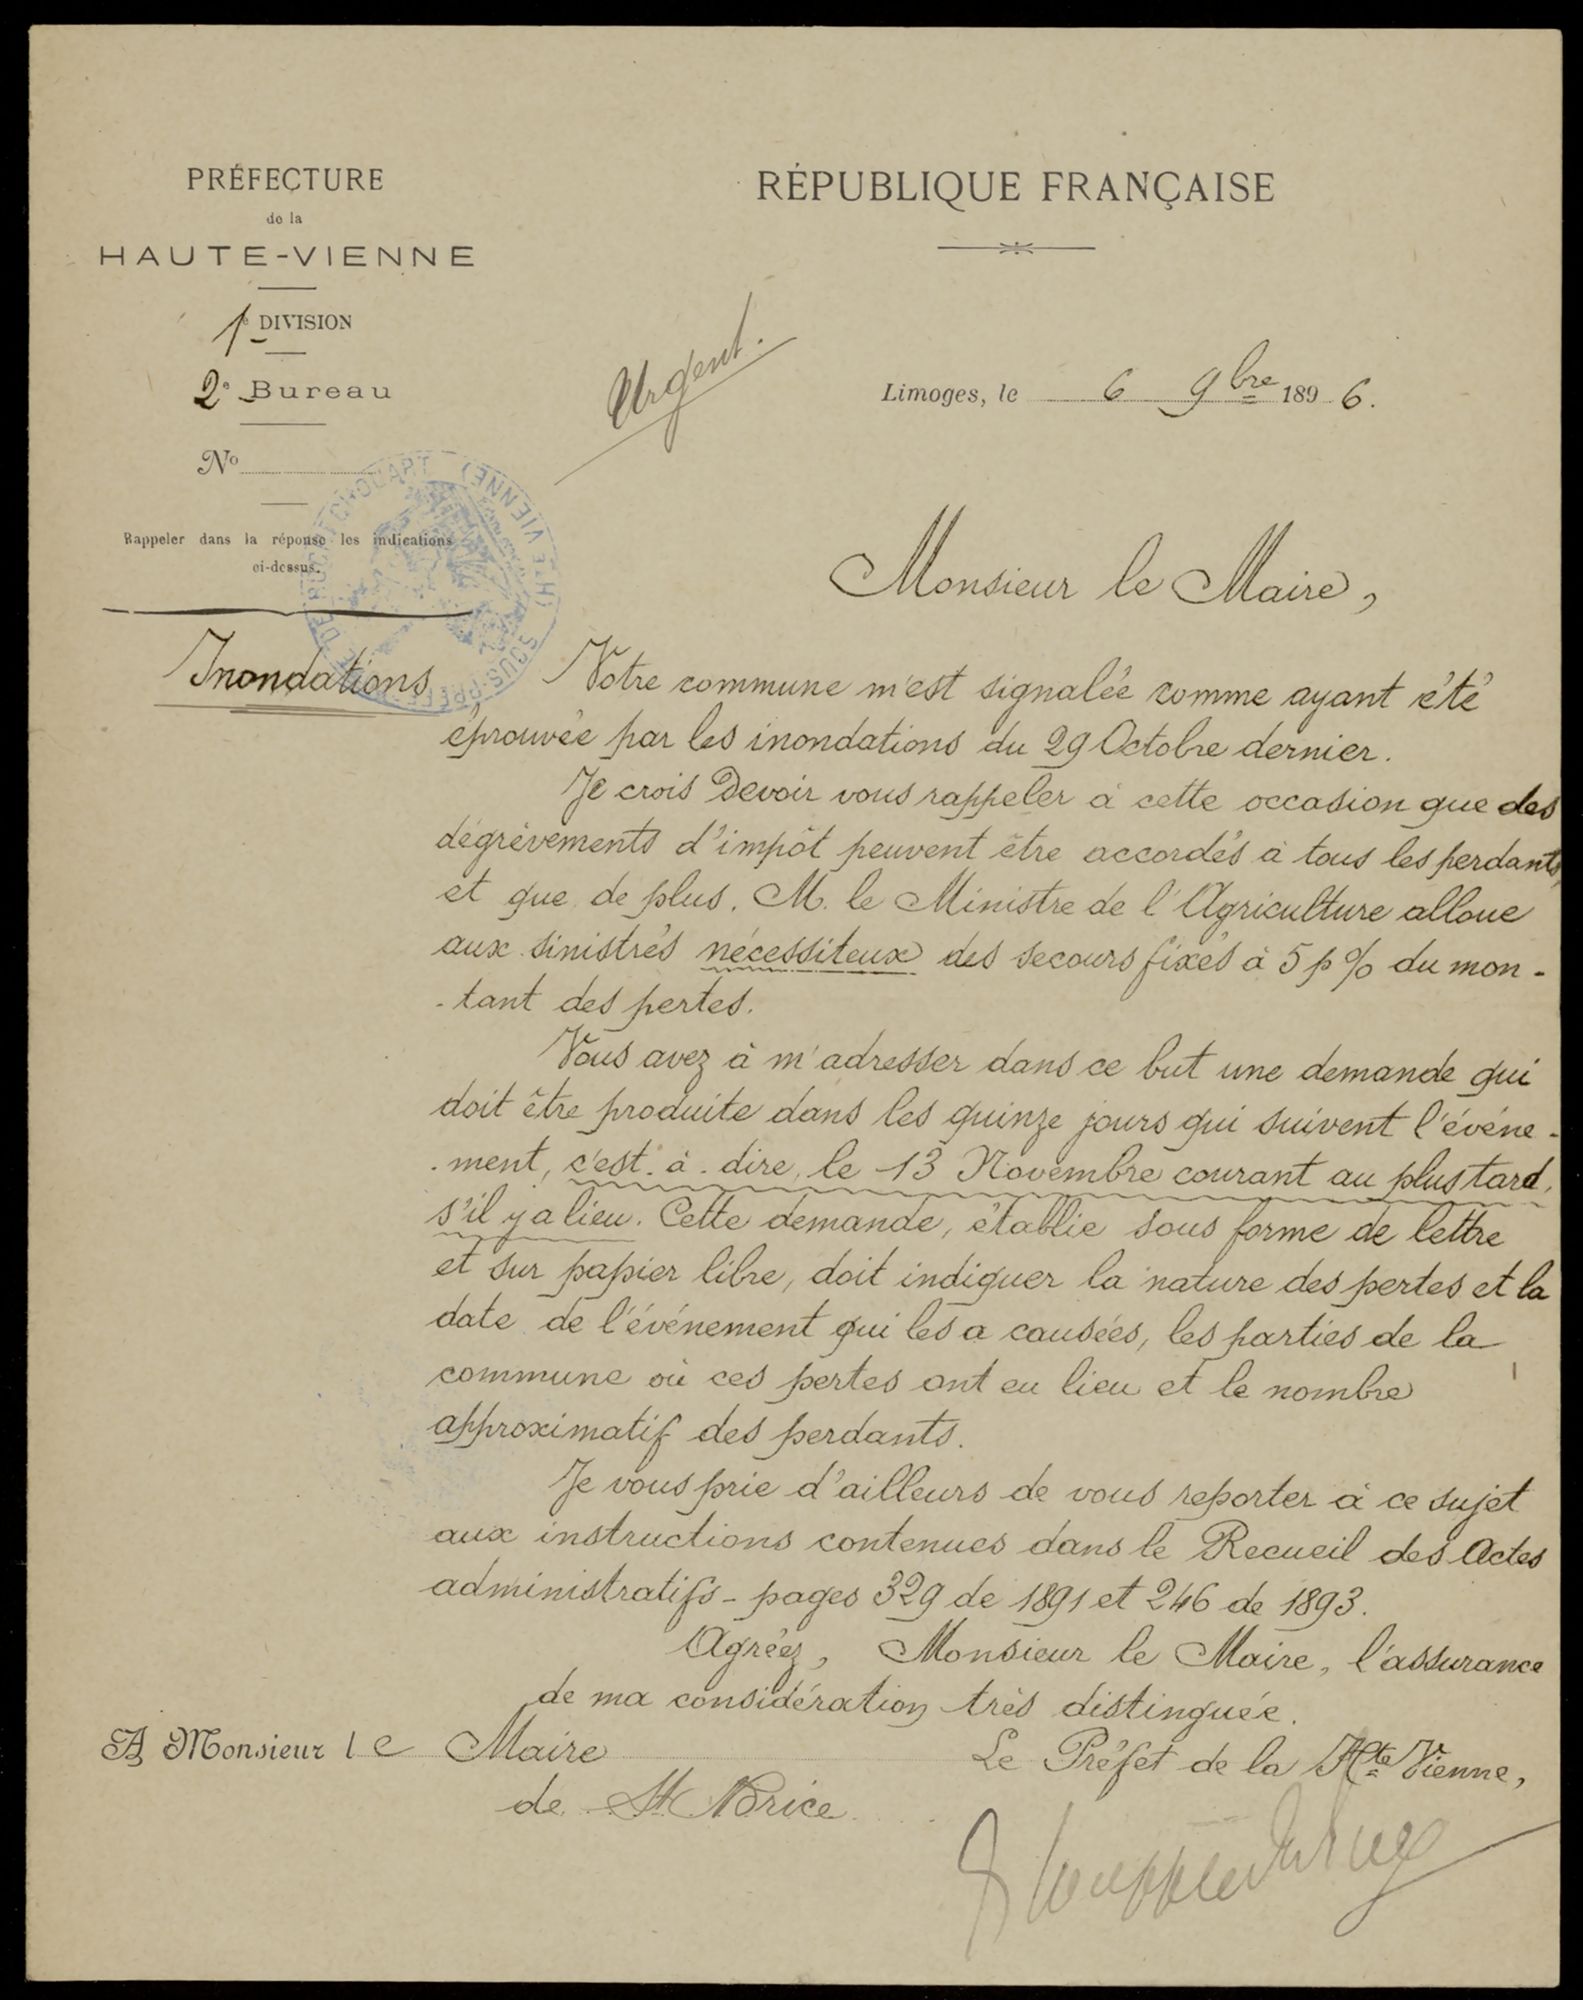 PRÉFECTURE
de la
HAUTE-VIENNE
1e DIVISION
2e Bureau
No
Rappeler dans la réponse les indications
ci-dessus.
RÉPUBLIQUE FRANÇAISE
Urgent.
Limoges, le 6 9bre 1896.
SOUS-PRÉFECTURE DE ROCHECHOUART (HTE VIENNE)
Monsieur le Maire,
Inondations
Votre commune m'est signalée comme ayant été
éprouvée par les inondations du 29 Octobre dernier.
Je crois Devoir vous rappeler à cette occasion que des
dégrèvements d'impôt peuvent être accordés à tous les perdants,
et que de plus, M. le Ministre de l'Agriculture alloue
aux sinistrés nécessiteux des secours fixés à 5 p % du mon-
-tant des pertes.
Vous avez à m'adresser dans ce but une demande qui
doit être produite dans les quinze jours qui suivent l'événe-
-ment, c'est-à-dire, le 13 Novembre courant au plus tard,
s'il y a lieu. Cette demande, établie sous forme de lettre
et sur papier libre, doit indiquer la nature des pertes et la
date de l'événement qui les a causées, les parties de la
commune où ces pertes ont eu lieu et le nombre
approximatif des perdants.
Je vous prie d'ailleurs de vous reporter à ce sujet
aux instructions contenues dans le Recueil des Actes
administratifs - pages 329 de 1891 et 246 de 1893.
Agréez, Monsieur le Maire, l'assurance
de ma considération très distinguée.
Le Préfet de la Hte Vienne,
A Monsieur le Maire
de St Brice